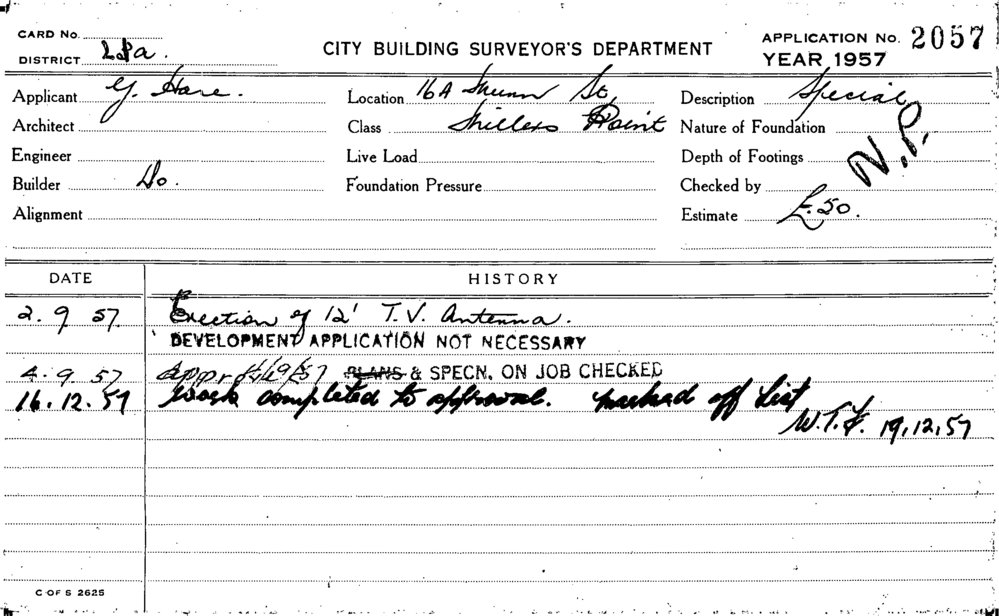 CARD No.
DISTRICT L8a.
CITY BUILDING SURVEYOR'S DEPARTMENT
APPLICATION No. 2057
YEAR 1957
Applicant G. Hare.
Location 16A Munn St,
Description Special
Architect
Class Millers Point
Nature of Foundation
N.P.
Engineer
Live Load
Depth of Footings
Builder Do.
Foundation Pressure
Checked by
Alignment
Estimate £50.
DATE
HISTORY
2. 9 57. Erection of 12' T.V. Antenna.
DEVELOPMENT APPLICATION NOT NECESSARY
4. 9. 57 Appr 4/9/57 PLANS & SPECN. ON JOB CHECKED
16. 12. 57 Work completed to approval. marked off List
W.T.F. 19.12.57
C OF S 2625